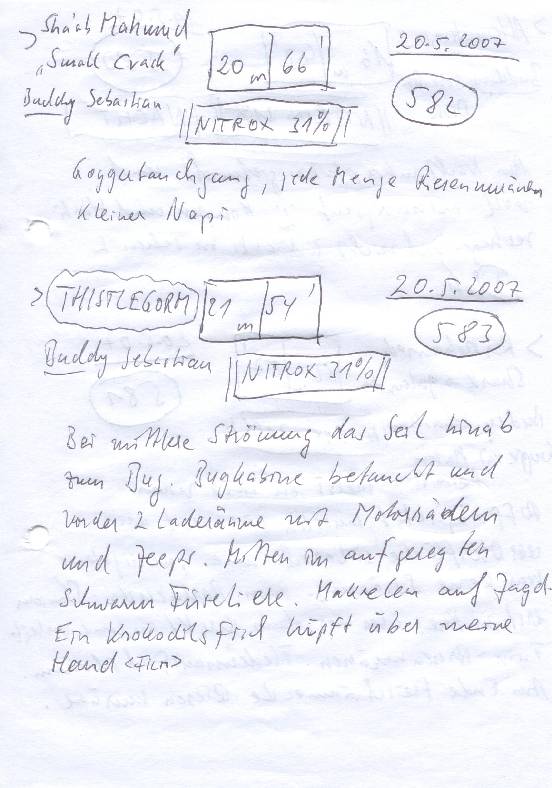 > Shaab Mahmud
„Small Crack"
20 m 66'
20.5.2007
582
Buddy Sebastian
NITROX 31%
jede Menge Riesenmuränen
Kleiner Napi
> THISTLEGORM
21 m 54'
20.5.2007
583
Buddy Sebastian
NITROX 31%
Bei mittlere Strömung das Seil hinab
zum Bug. Bugkabine betaucht und
vorder 2 Laderäume mit Motorrädern
und Jeeps. Mitten im aufgeregten
Schwarm Füseliere. Makrelen auf Jagd.
Ein Krokodilsfisch hüpft über meine
Hand <Film>